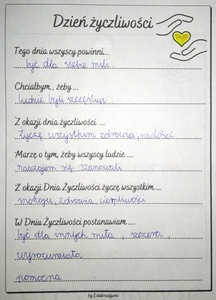 Dzień życzliwości
Tego dnia wszyscy powinni...
być dla siebie mili
Chciałbym, żeby ....
ludzie byli szczęśliwi
Z okazji dnia życzliwości ....
Życzę wszystkim zdrowia, radości
Marzę o tym, żeby wszyscy ludzie .....
nawzajem się szanowali
Z okazji Dnia Życzliwości życzę wszystkim....
spokoju, zdrowia, cierpliwości
W Dniu Życzliwości postanawiam.....
być dla innych miła, szczera,
wyrozumiała,
pomocna